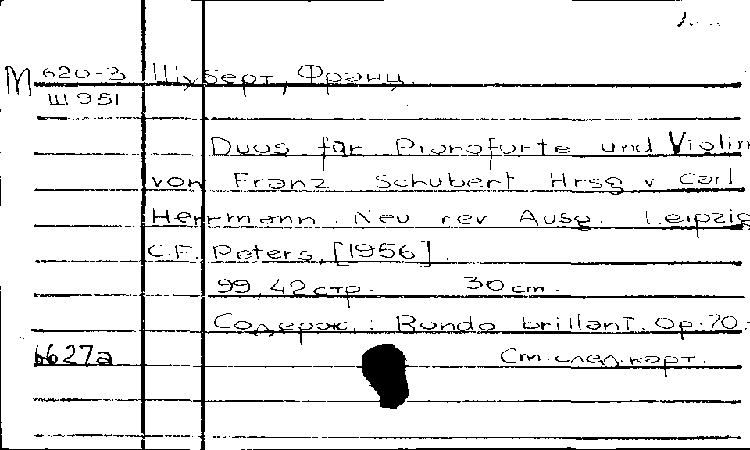 М 620-3 Шуберт, Франц.
Ш 951
Duos für Pianoforte und Violin
von Franz Schubert Hrsg v Carl
Herrmann. Neu rev Ausg. Leipzig
C.F. Peters, [1956].
99, 42 стр. 30 cm.
Содерж.: Rondo brillant. Op. 70.
6627а См. след. карт.